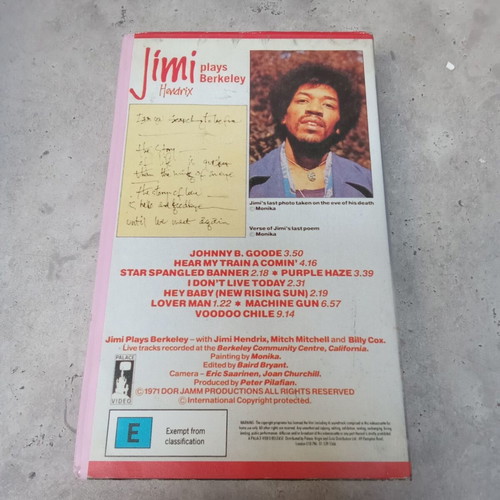 Jimi plays
Hendrix Berkeley
The story
of
than the
The story of love
hello and goodbye
until we meet again
Jimi's last photo taken on the eve of his death
©Monika
Verse of Jimi's last poem
©Monika
JOHNNY B. GOODE 3.50
HEAR MY TRAIN A COMIN' 4.16
STAR SPANGLED BANNER 2.18 * PURPLE HAZE 3.39
I DON'T LIVE TODAY 2.31
HEY BABY (NEW RISING SUN) 2.19
LOVER MAN 1.22 * MACHINE GUN 6.57
VOODOO CHILE 9.14
Jimi Plays Berkeley – with Jimi Hendrix, Mitch Mitchell and Billy Cox.
Live tracks recorded at the Berkeley Community Centre, California.
Painting by Monika.
Edited by Baird Bryant.
Camera – Eric Saarinen, Joan Churchill.
Produced by Peter Pilafian.
©1971 DOR JAMM PRODUCTIONS ALL RIGHTS RESERVED
©International Copyright protected.
PALACE
VIDEO
E
Exempt from
classification
WARNING: